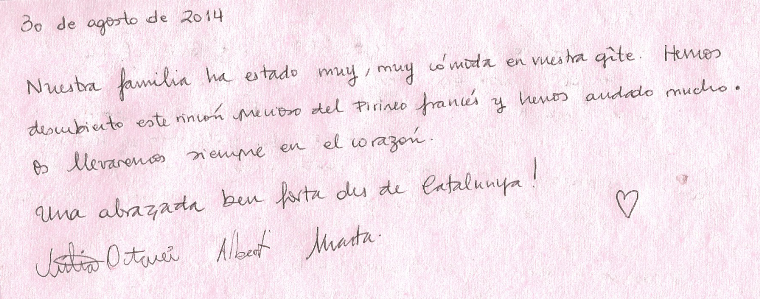 30 de agosto de 2014
Nuestra familia ha estado muy, muy cómoda en vuestra gîte. Hemos
descubierto este rincón precioso del Pirineo francés y hemos andado mucho.
Os llevaremos siempre en el corazón.
Una abraçada ben forta des de Catalunya!
Albert Marta.